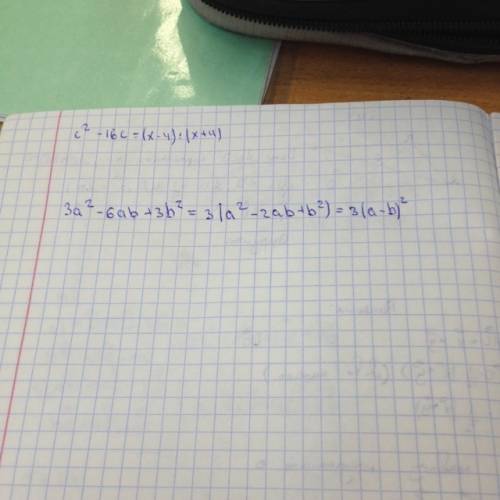 c² - 16c = (x-4)·(x+4)
3a² - 6ab + 3b² = 3(a² - 2ab + b²) = 3(a-b)²